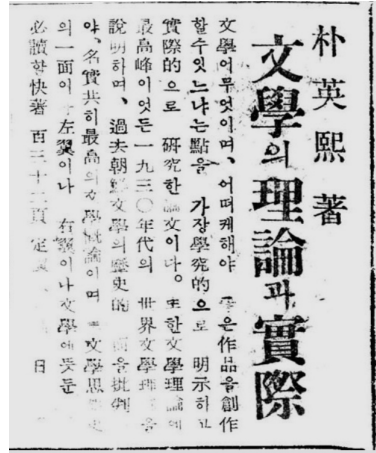 朴英熙 著
文學의 理論과 實際
文學이무엇이며, 어떠케해야 은作品을創作
할수잇느냐는點을 가장學究的으로 明示하고
實際的으로 硏究한 論文이다。또한文學理論에
最高峰이엇든一九三〇年代의 世界文學 을
說明하며, 過去朝鮮文學의歷史的 을批判
야, 名實共히最高의文學槪論이며 文學思 史
의一面이 左翼이나 右翼이나文學에뜻둔
必讀할快著 百三十二頁 定